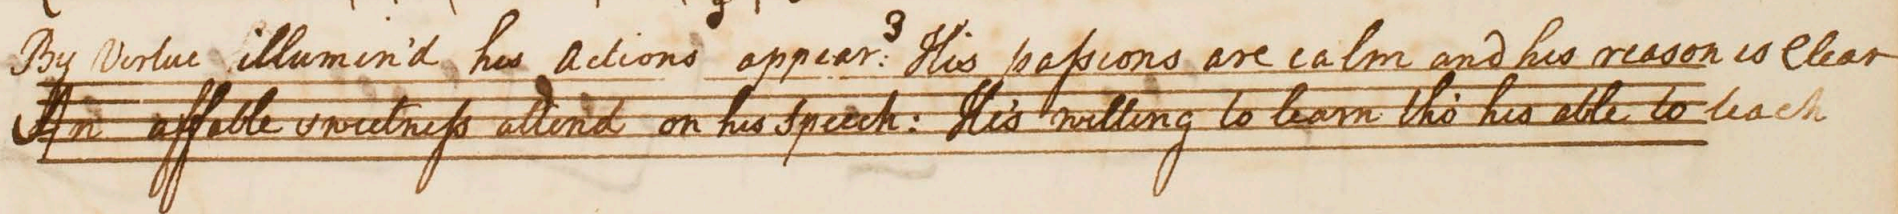 By Vertue illumin'd his actions appear:³ His paſsions are calm and his reason is Clear
An affable sweetneſs attend on his speech: He's willing to learn tho' his able to teach